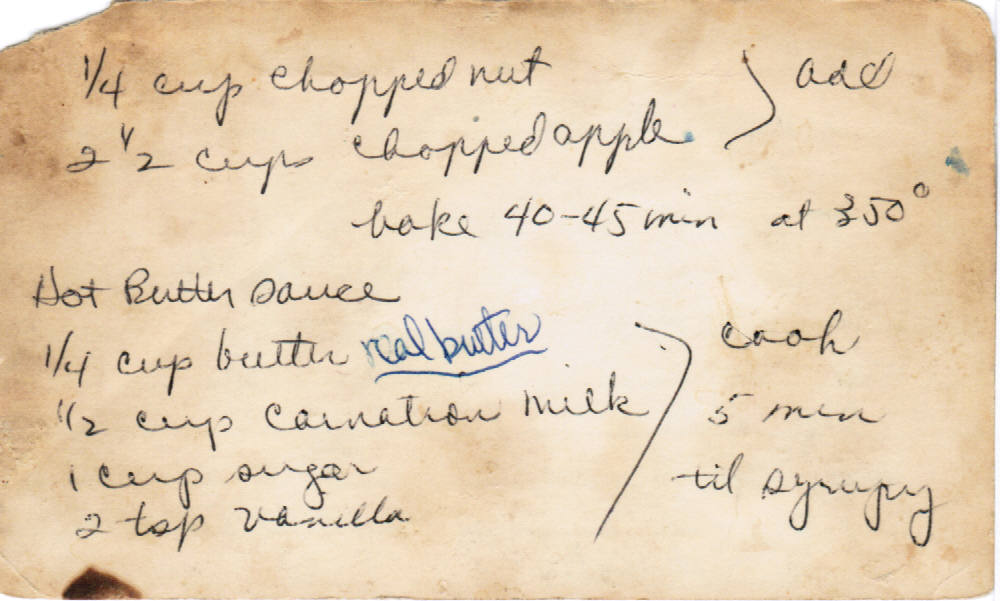 1/4 cup chopped nut } add
2 1/2 cups chopped apple
bake 40-45 min at 350°
Hot Butter Sauce
1/4 cup butter real butter } cook
1/2 cup Carnation Milk 5 min
1 cup sugar til syrupy
2 tsp vanilla